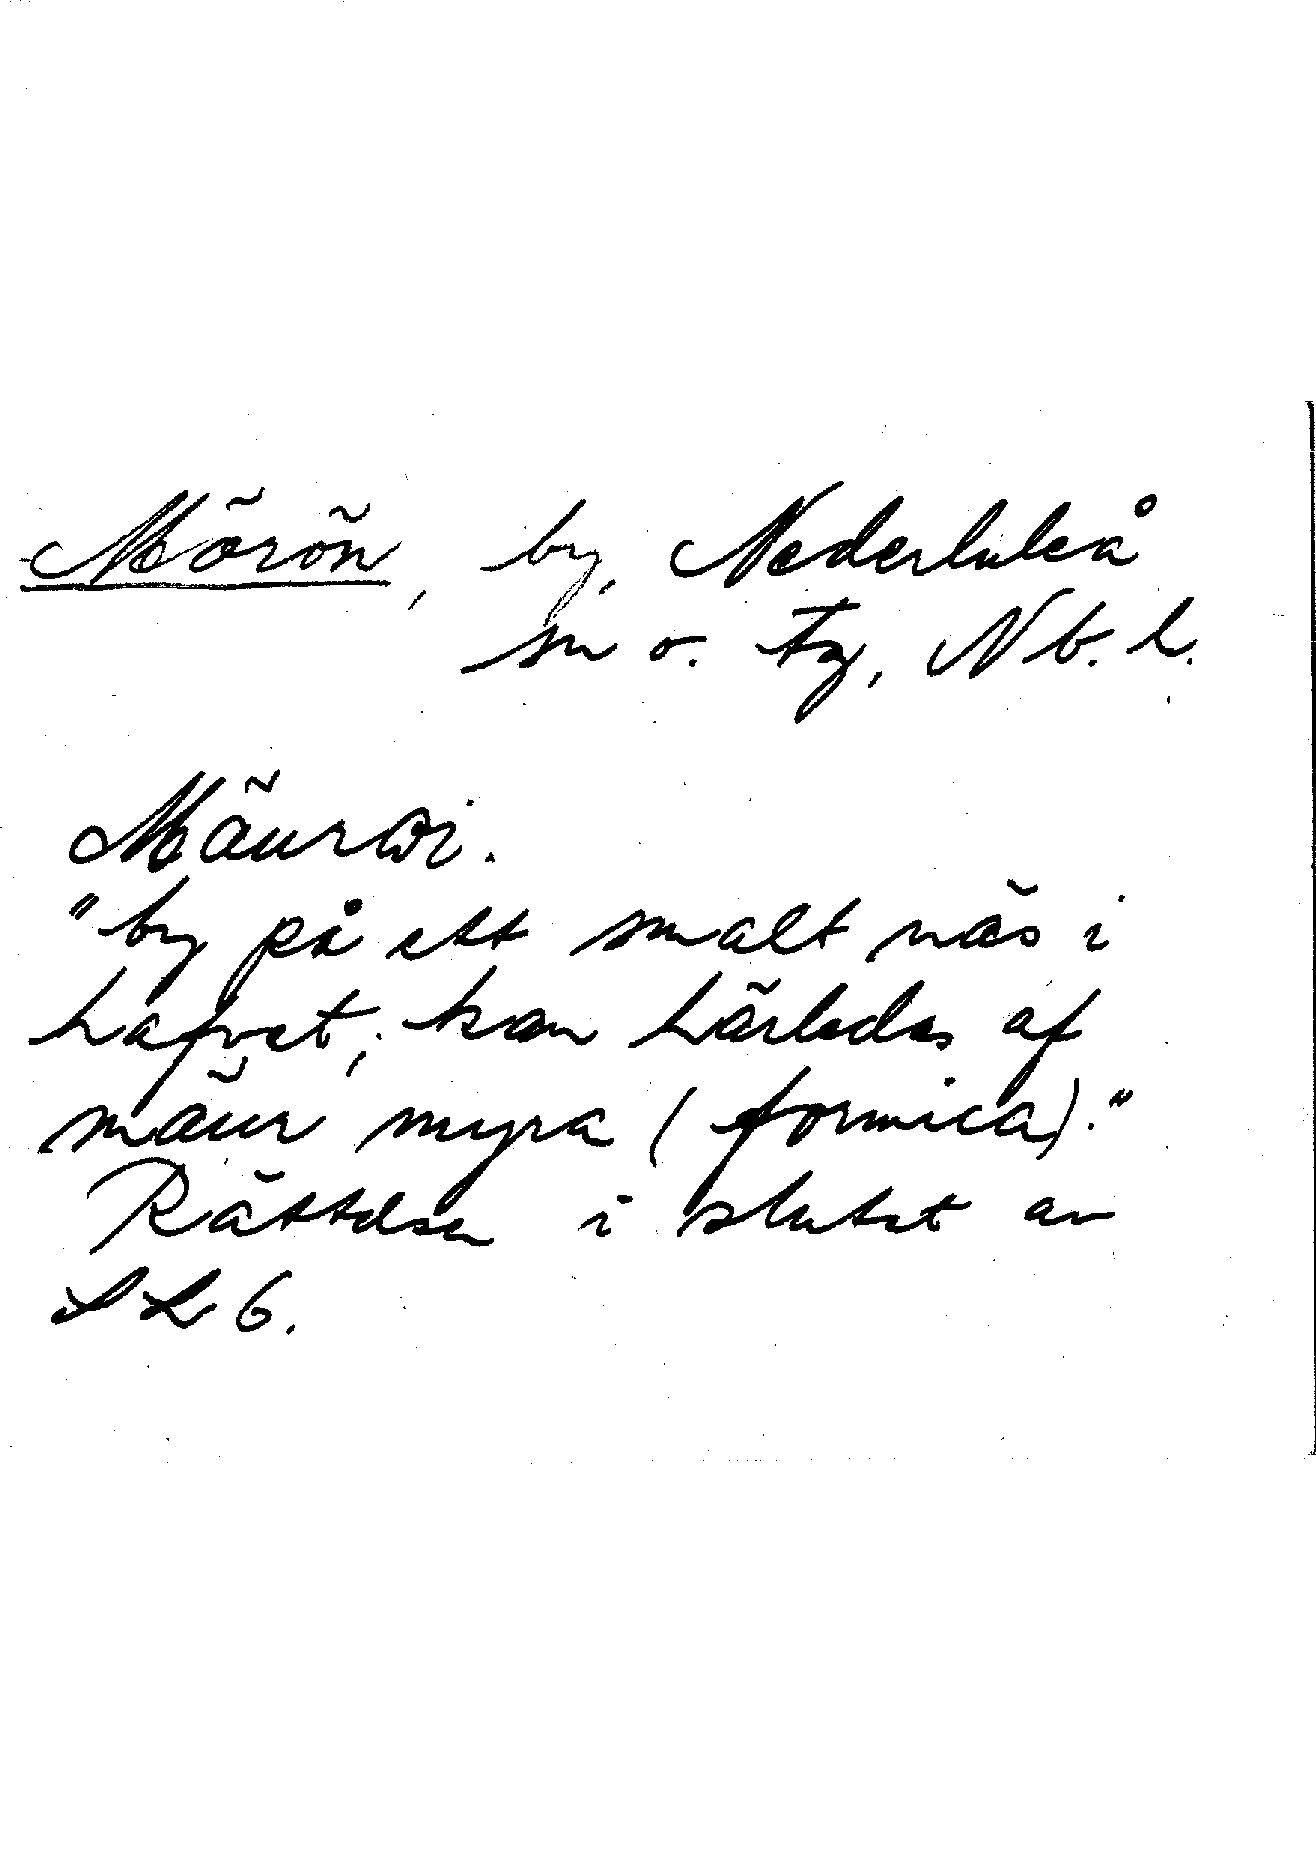 Mörön, by, Nederluleå
sn o. tg, Nb. l.
Mäurωi.
"by på ett smalt näs i
hafvet; kan härledas af
mäur myra (formica)."
Rättelser i slutet av
SL 6.